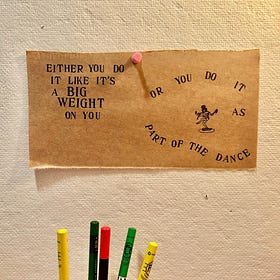 EITHER YOU DO
IT LIKE IT'S
A BIG
WEIGHT
ON YOU
OR YOU DO IT
AS
PART OF THE DANCE